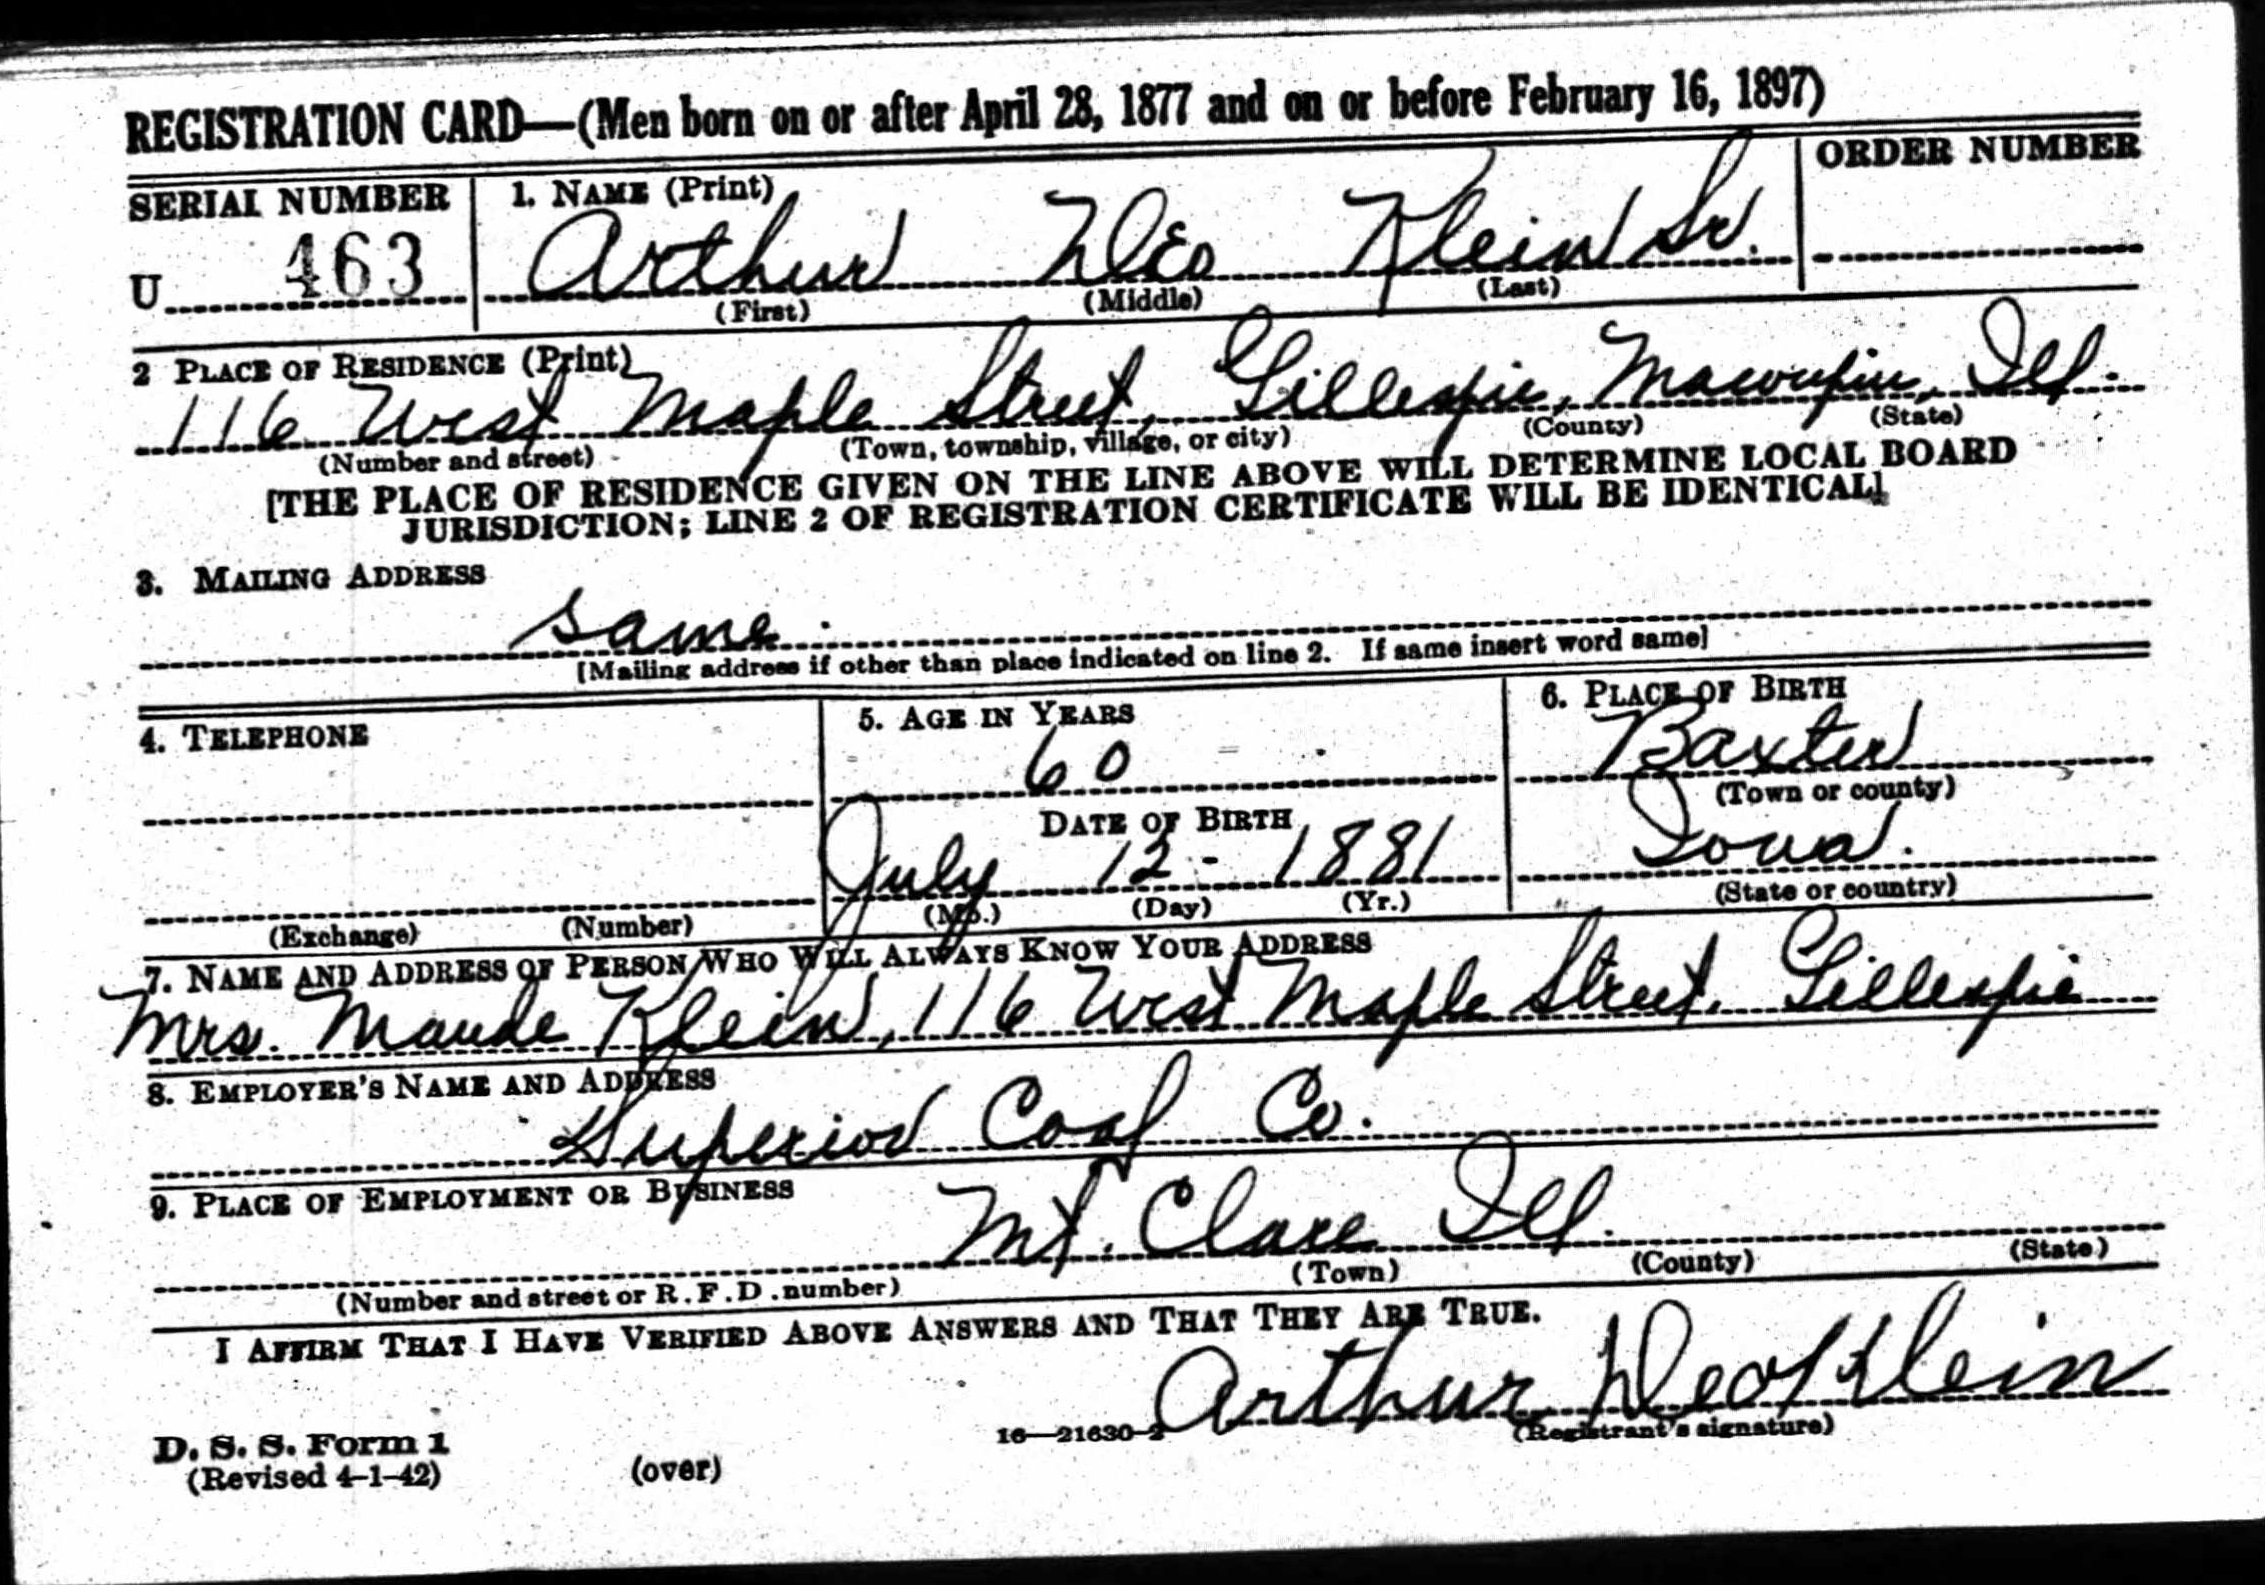 REGISTRATION CARD—(Men born on or after April 28, 1877 and on or before February 16, 1897)
SERIAL NUMBER 1. NAME (Print) ORDER NUMBER
U 463 Arthur Deo Klein Sr.
(First) (Middle) (Last)
2 PLACE OF RESIDENCE (Print)
116 West Maple Street, Gillespie, Macoupin, Ill.
(Number and street) (Town, township, village, or city) (County) (State)
[THE PLACE OF RESIDENCE GIVEN ON THE LINE ABOVE WILL DETERMINE LOCAL BOARD
JURISDICTION; LINE 2 OF REGISTRATION CERTIFICATE WILL BE IDENTICAL]
3. MAILING ADDRESS
same
[Mailing address if other than place indicated on line 2. If same insert word same]
4. TELEPHONE 5. AGE IN YEARS 6. PLACE OF BIRTH
60 Baxter
(Town or county)
DATE OF BIRTH
July 12 - 1881 Iowa.
(Exchange) (Number) (Mo.) (Day) (Yr.) (State or country)
7. NAME AND ADDRESS OF PERSON WHO WILL ALWAYS KNOW YOUR ADDRESS
Mrs. Maude Klein, 116 West Maple Street, Gillespie
8. EMPLOYER'S NAME AND ADDRESS
Superior Coal Co.
9. PLACE OF EMPLOYMENT OR BUSINESS
Mt. Clare Ill.
(Number and street or R.F.D. number) (Town) (County) (State)
I AFFIRM THAT I HAVE VERIFIED ABOVE ANSWERS AND THAT THEY ARE TRUE.
Arthur Deo Klein
D. S. S. Form 1 16—21630-2 (Registrant's signature)
(Revised 4-1-42) (over)